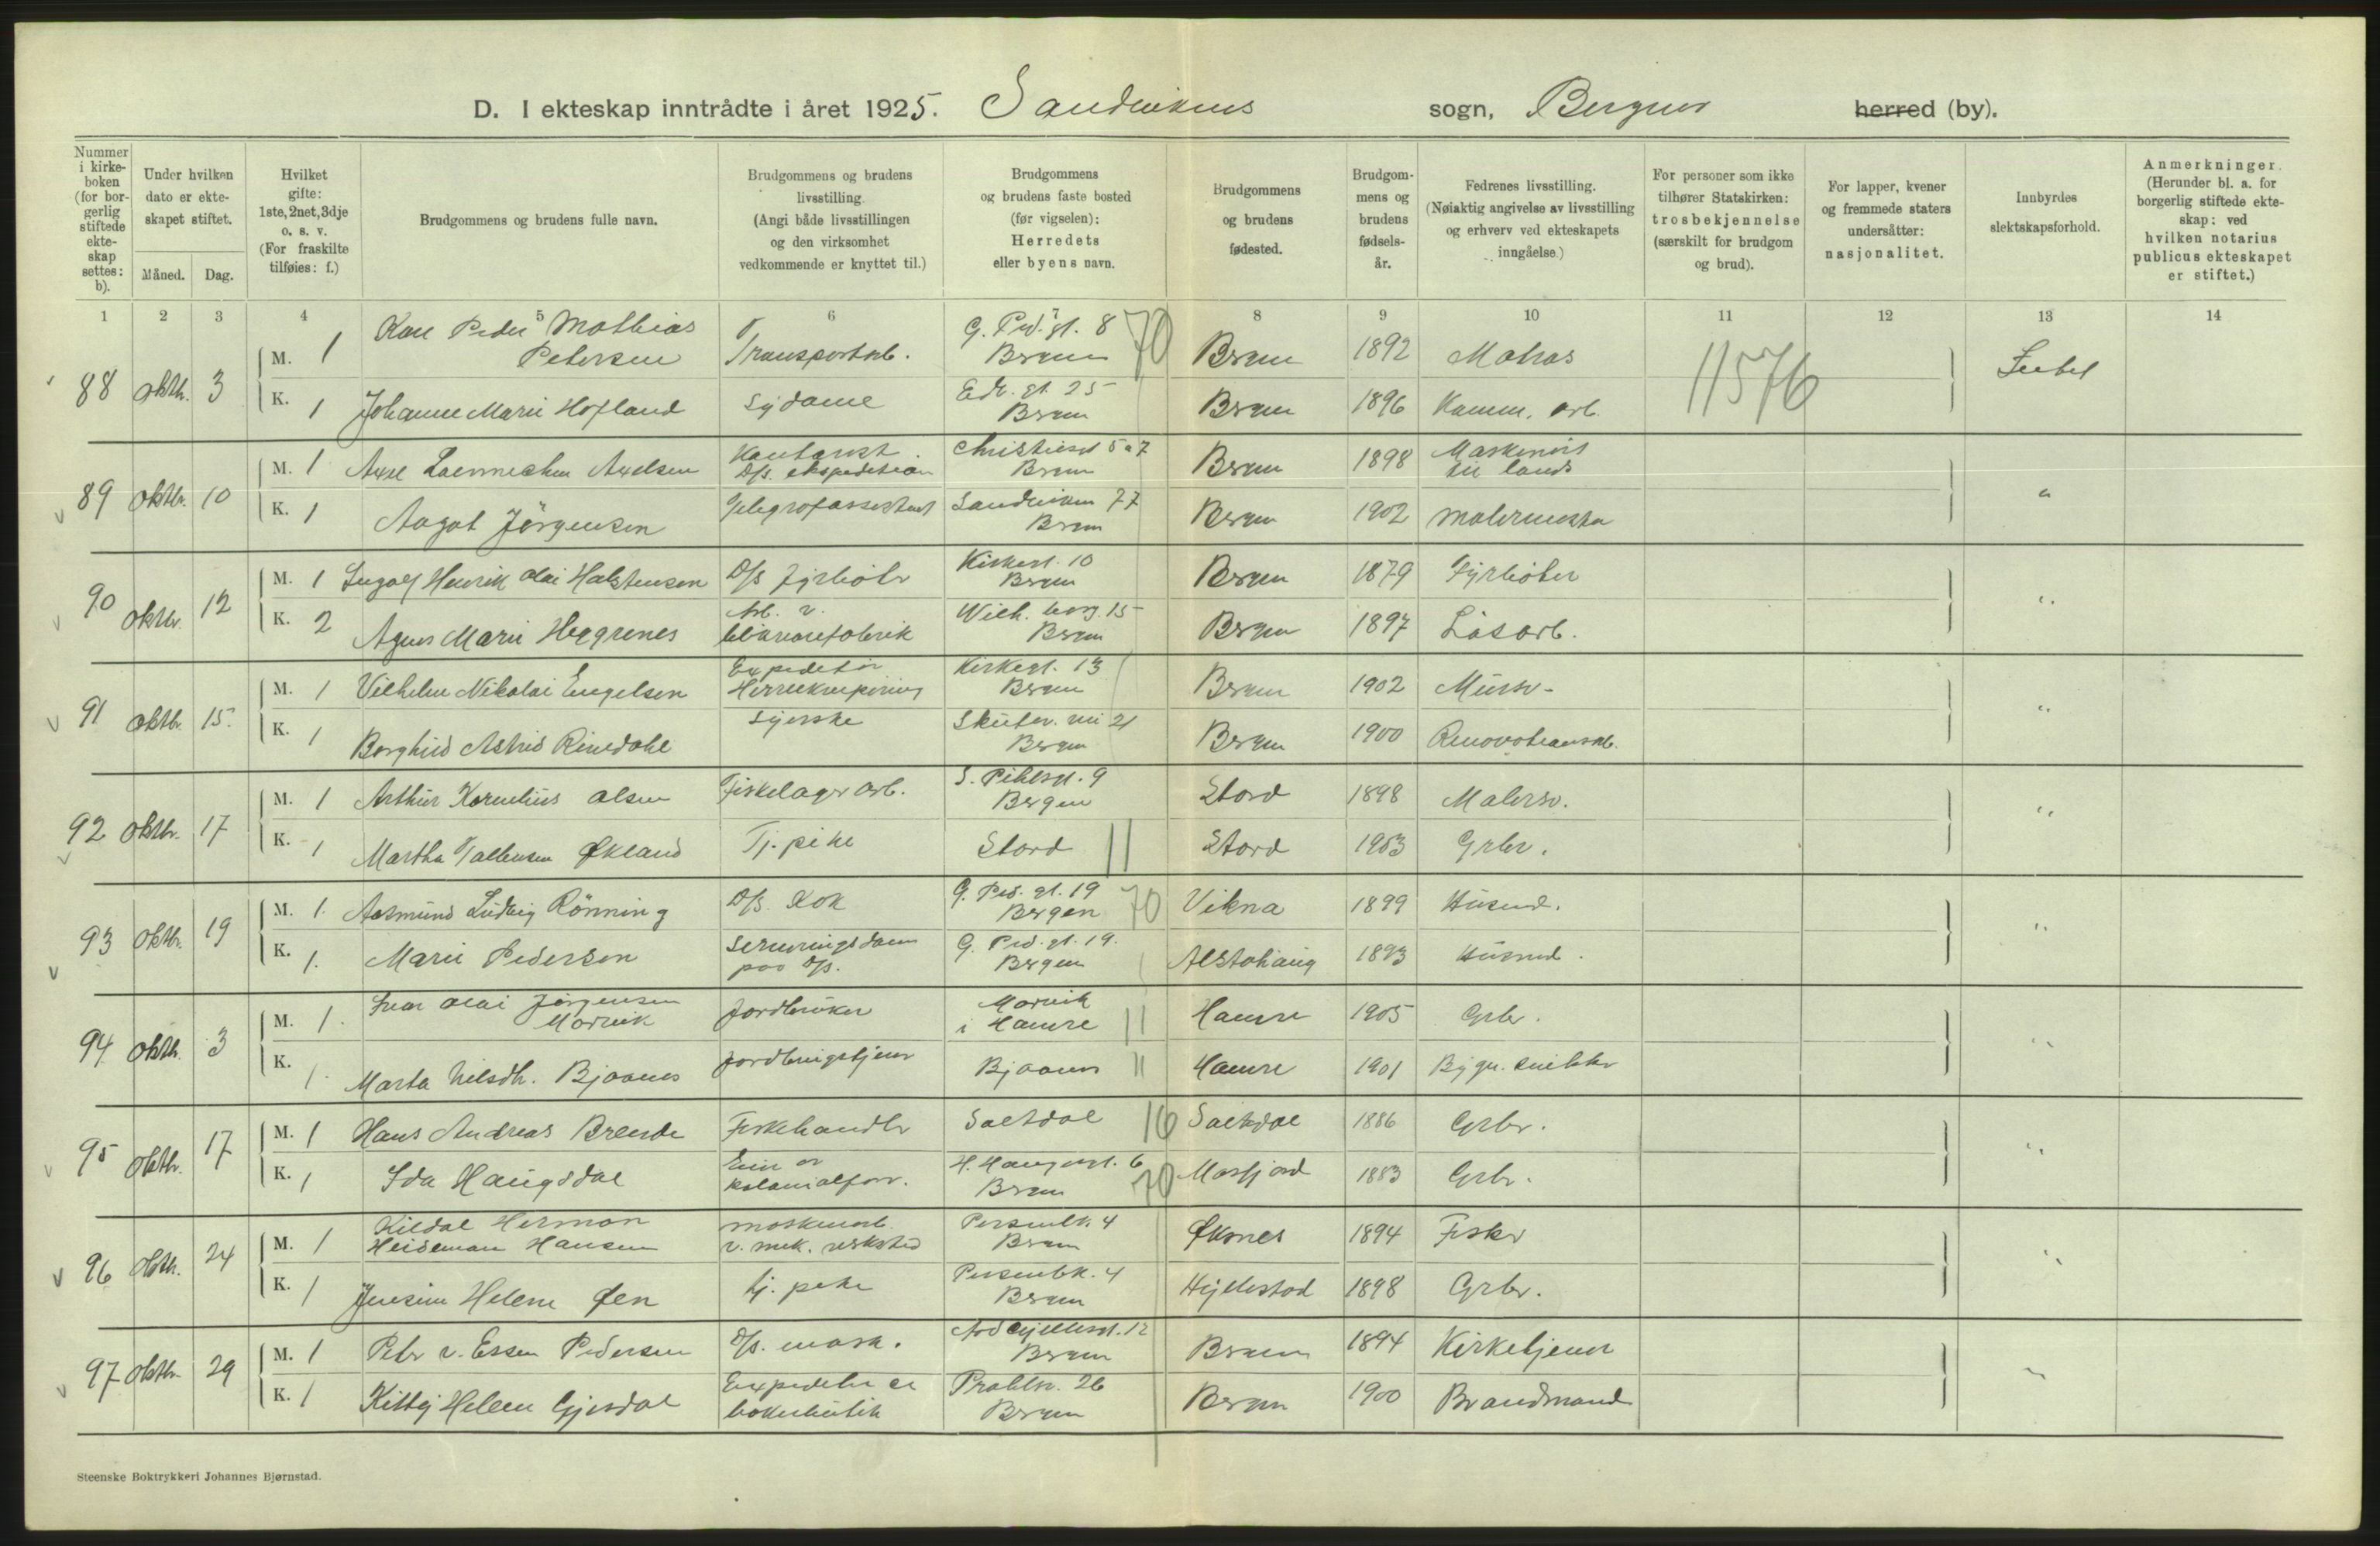 D. I ekteskap inntrådte i året 1925. Sandvikens sogn, Bergens herred (by).
Nummer i kirke-boken (for bor-gerlig stiftede ekte-skap settes: b).
Under hvilken dato er ekte-skapet stiftet.
Måned. Dag.
Hvilket gifte: 1ste, 2net, 3dje o. s. v. (For fraskilte tilføies: f.)
Brudgommens og brudens fulle navn.
Brudgommens og brudens livsstilling. (Angi både livsstillingen og den virksomhet vedkommende er knyttet til.)
Brudgommens og brudens faste bosted (før vigselen): Herredets eller byens navn.
Brudgommens og brudens fødested.
Brudgom-mens og brudens fødsels-år.
Fedrenes livsstilling. (Nøiaktig angivelse av livsstilling og erhverv ved ekteskapets inngåelse.)
For personer som ikke tilhører Statskirken: trosbekjennelse (særskilt for brudgom og brud).
For lapper, kvener og fremmede staters undersåtter: nasjonalitet.
Innbyrdes slektskapsforhold.
Anmerkninger. (Herunder bl. a. for borgerlig stiftede ekte-skap: ved hvilken notarius publicus ekteskapet er stiftet.)
1 2 3 4 5 6 7 8 9 10 11 12 13 14
88 oktb. 3
M. 1 Peder Mathias Petersen Transportarb. G. Ped. gt. 8 Bergen 70 Bergen 1892 Matros 11576
K. 1 Johanne Marie Hofland Sydame 25 Bergen Bergen 1896 Komm. arb.
89 oktbr. 10
M. 1 Axelsen Kontorist D/s. ekspedition Christiesgt 5 a 7 Bergen Bergen 1898 Maskinist til lands "
K. 1 Aagot Jörgensen Telegrafassistent Sandviken 77 Bergen Bergen 1902 Malermester
90 oktbr. 12
M. 1 Ingolf Henrik Olai Halstensen D/s fyrböter Kirkegt. 10 Bergen Bergen 1879 Fyrböter "
K. 2 Agnes Marie Heggrenes Arb. v. blikvarefabrik Wilh. borg. 15 Bergen Bergen 1897 Lösarb.
91 oktbr. 15.
M. 1 Vilhelm Nikolai Engelsen Expeditör Herreekvipering Kirkegt. 13 Bergen Bergen 1902 Mursv. "
K. 1 Borghild Astrid Rinedahl Syerske Skutev. vei 21 Bergen Bergen 1900 Renovationsarb.
92 oktbr. 17
M. 1 Arthur Kornelius Olsen Fiskelager arb. S. Pihlsgt. 9 Bergen Stord 1898 Malersv. "
K. 1 Martha Økland Tj. pike Stord 11 Stord 1903 Grbr.
93 oktbr. 19
M. 1. Aasmund Ludvig Rönning D/s. Kok G. Ped. gt. 19 Bergen 70 Vikna 1899 Husmd. "
K. 1. Marie Pedersen Serveringsdame paa D/s. G. Ped. gt. 19. Bergen Alstahaug 1893 Husmd.
94 oktb. 3
M. 1. Ivar Olai Jörgensen Morvik Jordbruker Morvik i Hamre 11 Hamre 1905 Grbr. "
K. 1. Marta Nilsdtr. Bjaanes Bjaanes 11 Hamre 1901 Bygn. snikker
95 oktbr. 17
M. 1 Hans Andreas Brende Fiskehandler Saltdal 16 Saltdal 1886 Grbr. "
K. 1 Ida Haugsdal kolonialforr. H. Haugesgt. 6 Bergen 70 Masfjord 1883 Grbr.
96 oktb. 24
M. 1 Kildal Herman Heideman Hansen maskinarb. v. mek. verksted Persenbk. 4 Bergen Øksnes 1894 Fisker "
K. 1 Jensine Helene Øen tj. pike Persenbk. 4 Bergen Hyllestad 1898 Grbr.
97 oktbr. 29
M. 1 Peter v. Essen Pedersen D/s. mask. 12 Bergen Bergen 1894 Kirketjener "
K. 1 Kitty Helene Gjesdal Prahlsv. 26 Bergen Bergen 1900 Brandmand
Steenske Boktrykkeri Johannes Bjørnstad.